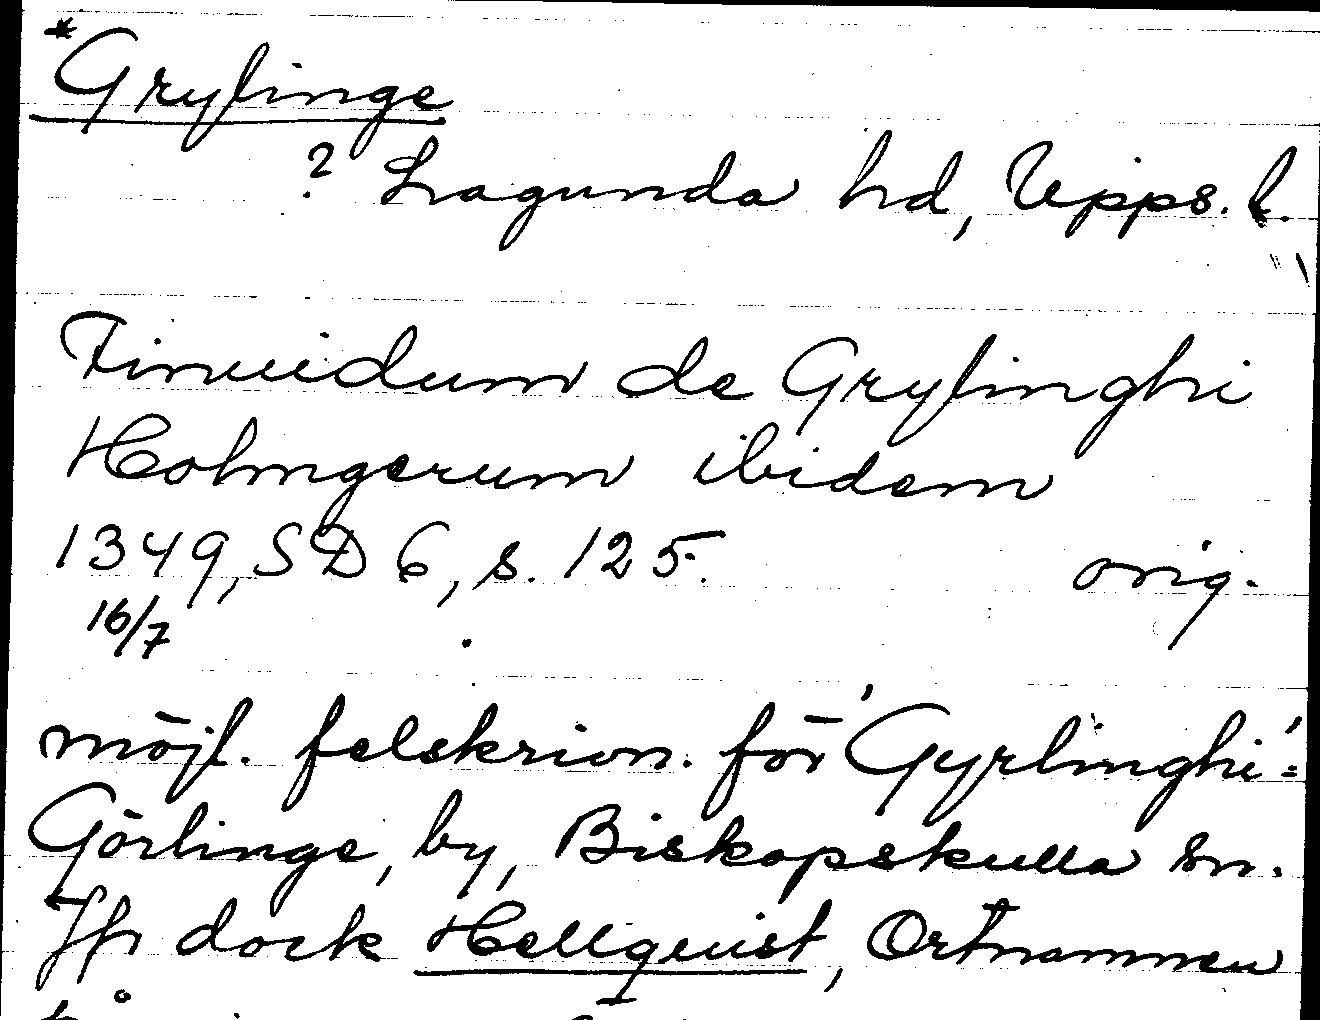 *Grylinge
? Lagunda hd, Upps. l.
Finuidum de Grylinghi
Holmgerum ibidem
1349, SD 6, s. 125. orig.
16/7
möjl. felskrivn. för 'Gyrlinghi' =
Görlinge, by, Biskopskulla sn.
Jfr dock Hellquist, Ortnamnen